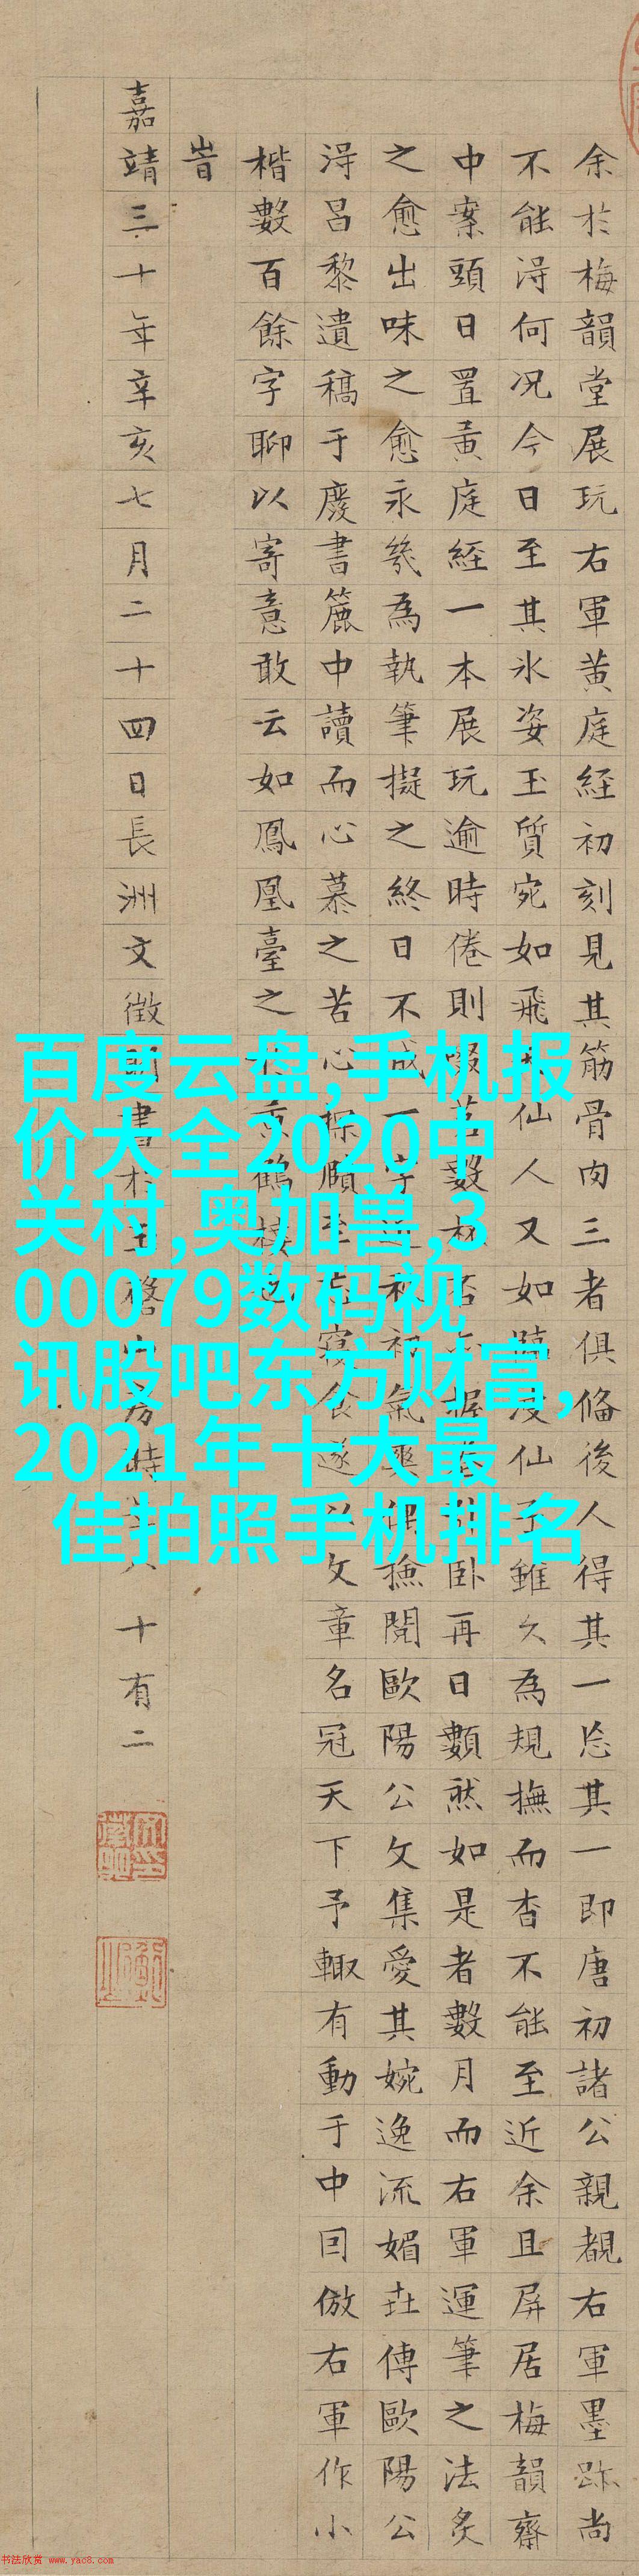 余於梅韻堂展玩右軍黃庭経初刻見其筋骨肉三者俱俻後人得其一忘其一即唐初諸公親覩右軍墨跡尚
不能淂何况今日至其氷姿玉質宛如飛仙人又如凌仙子雖久為規撫而杳不能至近余且屏居梅韻齋
中案頭日置黃庭経一本展玩逾時倦則啜茗數杯否卧再日數然如是者數月而右軍運筆之法炙
之愈出味之愈永幾為執筆擬之終日不成一字秋初氣爽偶撿閱歐陽公文集愛其婉逸流媚世傳歐陽公
淂昌黎遺稿于廢書簏中讀而心慕之苦心探賾至忘寢食遂以文章名冠天下予輙有動于中囙倣右軍作小
楷數百餘字聊以寄意敢云如鳳凰臺之黃鶴樓
旹
嘉靖三十年辛亥七月二十四日長洲文徵明書於玉磬山房時年八十有二
百度云盘,手机报
价大全2020中
关村,奥加兽,3
00079数码视
讯股吧东方财富,
2021年十大最
佳拍照手机排名
书法欣赏 www.yac8.com